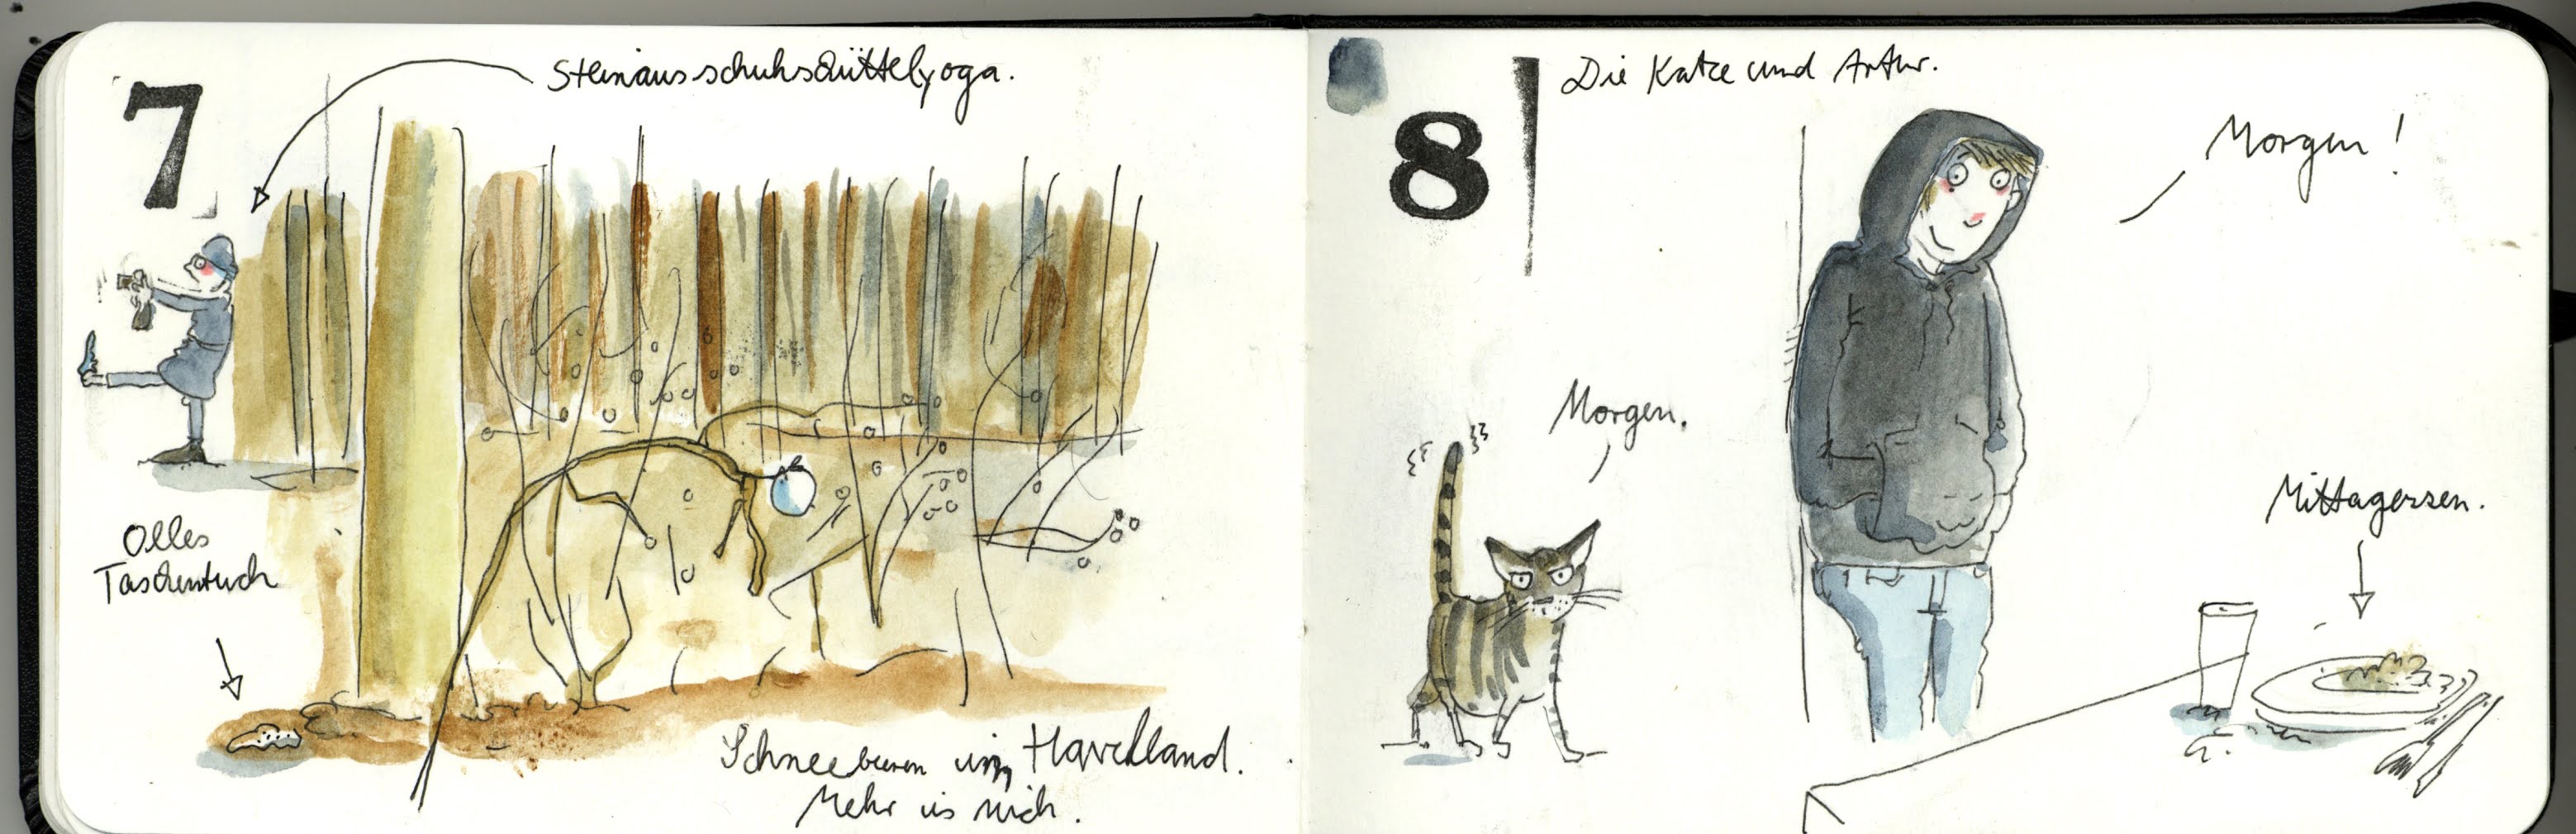 7
Steinausschuhschüttelyoga.
Olles
Taschentuch
Schneebeeren im Havelland.
Mehr is nich.
8
Die Katze und Artur.
Morgen!
Morgen.
Mittagessen.